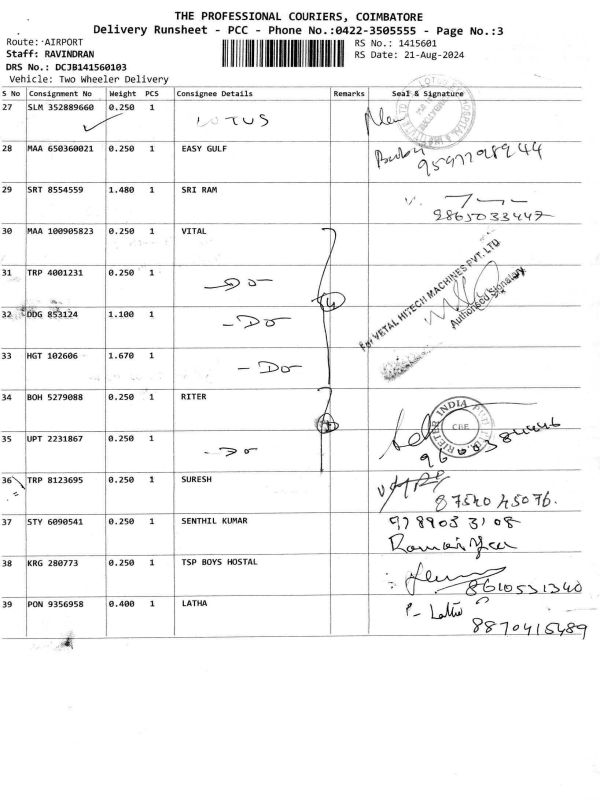 THE PROFESSIONAL COURIERS, COIMBATORE
Delivery Runsheet - PCC - Phone No.:0422-3505555 - Page No.:3
Route: AIRPORT RS No.: 1415601
Staff: RAVINDRAN RS Date: 21-Aug-2024
DRS No.: DCJB141560103
Vehicle: Two Wheeler Delivery
S No Consignment No Weight PCS Consignee Details Remarks Seal & Signature
27 SLM 352889660 0.250 1 LOTUS
28 MAA 650360021 0.250 1 EASY GULF
29 SRT 8554559 1.480 1 SRI RAM
9865033447
30 MAA 100905823 0.250 1 VITAL
31 TRP 4001231 0.250 1 -Do-
For VETAL HITECH MACHINES PVT. LTD
Authorised Signatory
32 DDG 853124 1.100 1 -Do-
33 HGT 102606 1.670 1 -Do-
34 BOH 5279088 0.250 1 RITER
RIETER INDIA
CBE
35 UPT 2231867 0.250 1 -Do-
36 TRP 8123695 0.250 1 SURESH
87540 45076.
37 STY 6090541 0.250 1 SENTHIL KUMAR
38 KRG 280773 0.250 1 TSP BOYS HOSTAL
8610531340
39 PON 9356958 0.400 1 LATHA P- Latha
8870415489